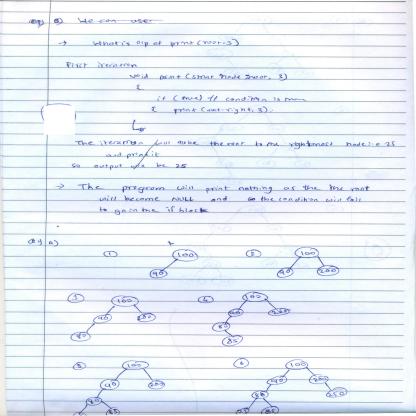 b) We can user
→ What is o/p of print (root, 3)
First iteration
void print (struct node *root, 3)
{
if (true) // condition is true
{ print (root→right, 3).
The iteration will take the root to the rightmost node i.e 25
and print it
so output will be 25
→ The program will print nothing as the the root
will become NULL and so the condition will fail
to gain the if block
a)
1 100
90
2 100
90 200
3 100
90
80
4 100
90 200
80
5 100
90 200
80
85
6 100
90 200
80 250